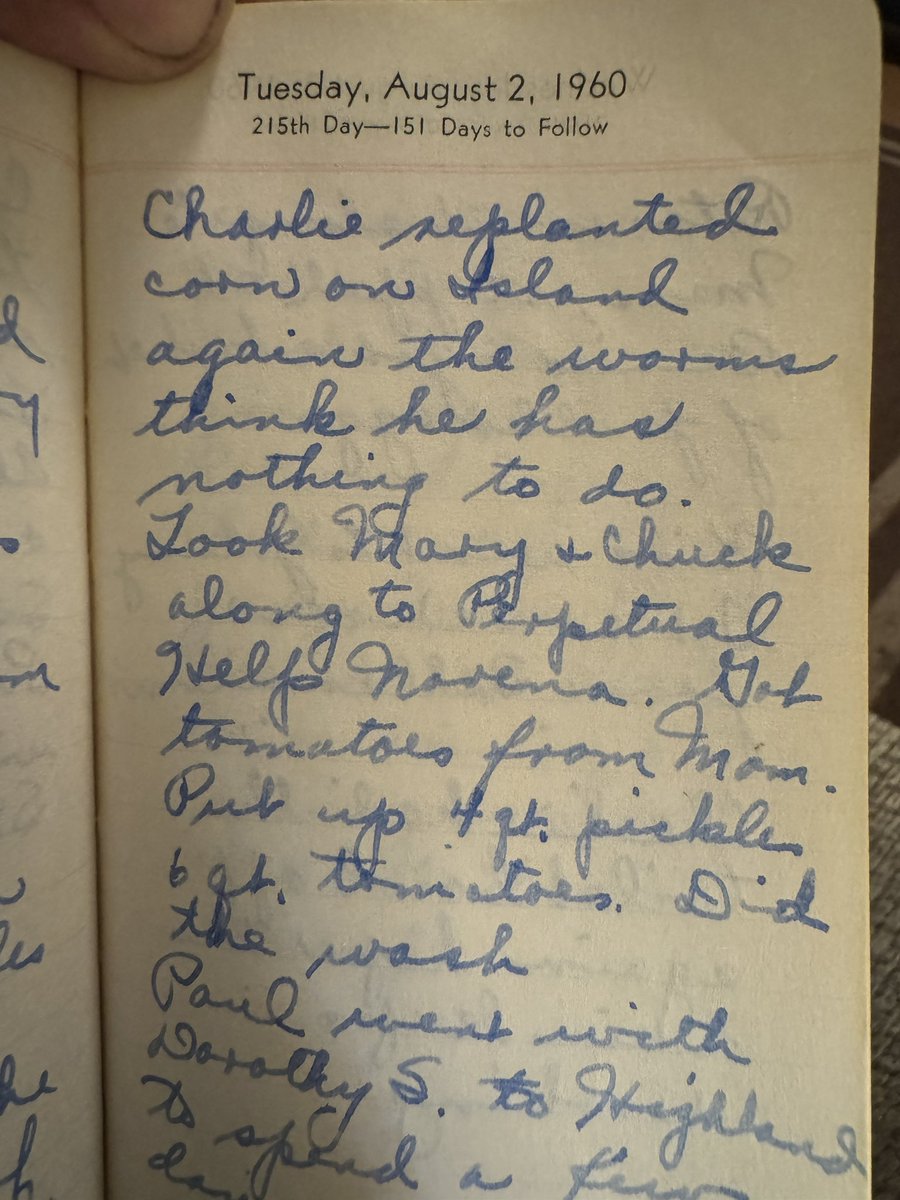 Tuesday, August 2, 1960
215th Day—151 Days to Follow
Charlie replanted
corn on Island
again the worms
think he has
nothing to do.
Took Mary & Chuck
along to Perpetual
Help Novena. Got
tomatoes from Mom.
Put up 4 qt. pickles
6 qt. tomatoes. Did
the wash
Paul went with
Dorothy S. to Highland
to spend a few